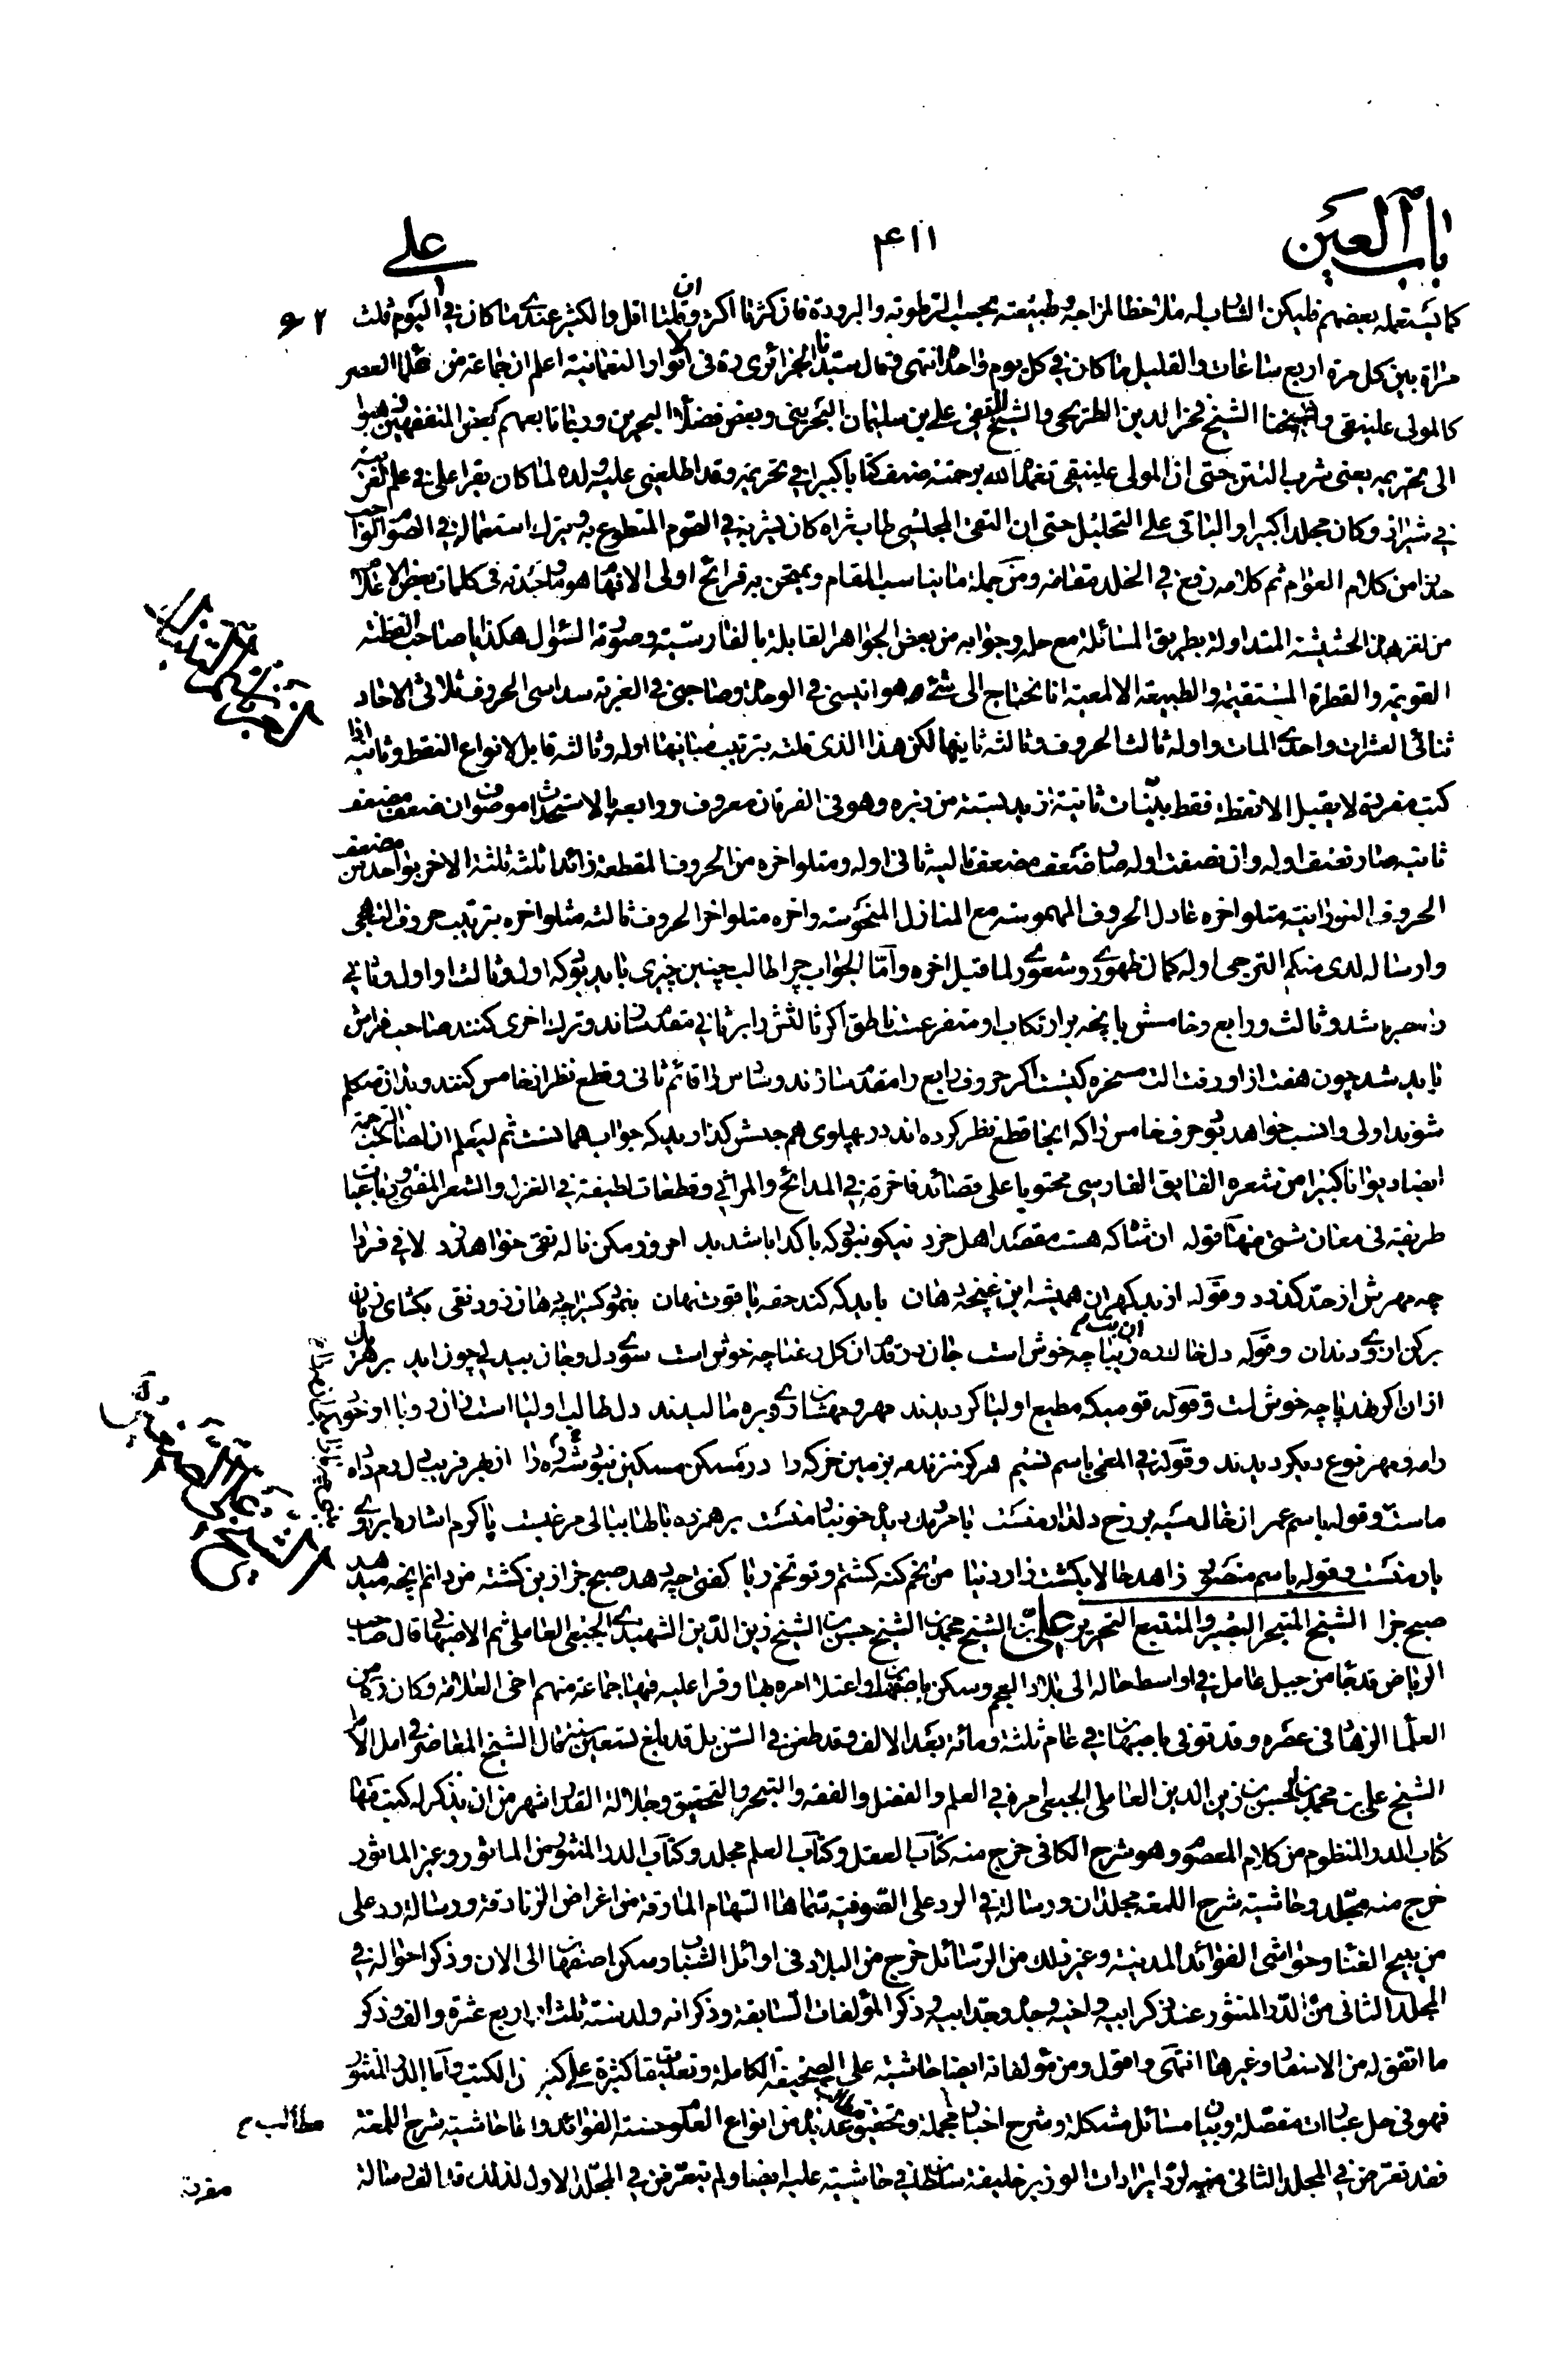 باب العين
۴۱۱
علي
كما يستعمله بعضهم فليكن الشارب له ملاحظا لمزاجه وطبيعته بحسب الرطوبة والبرودة فان كثرنا اكثر وان قللنا اقل والكثير عندي ما كان في اليوم ثلث
مرات بين كل مرة اربع ساعات والقليل ما كان في كل يوم واحدا انتهى وقال سيدنا الجزائري ره في الانوار النعمانية اعلم ان جماعة من علماء العصر
كالمولى علينقي وشيخنا الشيخ فخر الدين الطريحي والشيخ التقي علي بن سليمان البحريني وبعض فضلاء البحرين وربما تابعهم بعض المتفقهين ذهبوا
الى تحريمه يعني شرب التتن حتى ان المولى علينقي تغمده الله برحمته صنف كتابا كبيرا في تحريمه وقد اطلعني عليه ولده لما كان يقرأ علي في علم العربية
في شيراز وكان مجلدا كبيرا والباقي على التحليل حتى ان التقي المجلسي طاب ثراه كان يشربه في الصوم المتطوع به ويترك استعماله في الصوم الواجب
حذرا من كلام العوام ثم كلامه رفع في الخلد مقامه ومن جملة ما يناسب المقام ويمتحن به قرائح اولى الافهام هو ما وجدته في كلمات بعض الاعلام
من لغز هذا الحشيشة المتداولة بطريق المسائلة مع حله وجوابه من بعض الجواهر القابلة بالفارسية وصورة السؤال هكذا يا صاحب الفطنة
القويمة والفطرة المستقيمة والطبيعة الالمعية انا نحتاج الى شئ هو انيسي في الوحدة وصاحبي في الغربة سداسي الحروف ثلاثي الاحاد
ثنائي العشرات واحدي المات واوله ثالث الحروف وثالثه ثانيها لكن هذا الذي قلته بترتيب مبانيها اوله وثالثه قابل لانواع النقط وثانيه اذا
كتب منفردة لا يقبل الا نقطة فقط بينات ثانية ازيد بستة من زبره وهو في الفرقان معروف ورابعه بالاستحداث موصوف وان ضعف مضعف
ثانيه صار تعنف اوله وان نصفت اوله صار ضعف مضعف تاليه ثاني اوله ومتلو اخره من الحروف المقطعة زائدا ثلثه ثلثة الاخر بواحد من
الحروف النورانية متلو اخره عادل الحروف المهموسة مع المنازل المنحوسة واخره متلو اخر الحروف ثالثه متلو اخره بترتيب حروف التهجي
وارساله لدى منكم الترجي اوله كمال ظهوري وشعوري لما قبل اخره واما الجواب چرا طالب چنين چيزى بايد بود كه اول وثالث او اول وثاني
باشد وثالث ورابع وخامسش بانچه بر ارتكاب او متفرعست ناطق اگر ثالثش را بر ثانى مقدم دارند وترك اخرى كنند صاحب فراش
بايد شد چون هفت از او رفت الت مسخره كيست اگر حروف رابع را مقدم سازند وسادس را قائم ثانى وقطع نظر از خامس كنند وبدان متكلم
شوند اولى وانسب خواهد بود حرف خامس را كه اينجا قطع نظر كرده اند در پهلوى هم جنسش گذاريد كه جواب همانست ثم ليعلم ان لصاحب الترجمة
ايضا ديوانا كبيرا من شعره الفايق الفارسي محتويا على قصائد فاخرة في المدائح والمراثي وقطعات لطيفة في الغزل والشعر المثنوي ورباعيات
طريفة في معان شتى فمنها قوله ان شاكه هست مقصد اهل خرد نيكو نبود كه با گدا باشد بد امروز مكن ناله نقى خواهد زد لافى فردا
چه مهرش از حد گذرد وقوله از ديگران هميشه اين غنچه دهان بايد كه كند حقه ياقوت نهان بنمود كسى را چه دهان زود نقى بگشاى زبان
بركن از وى دندان وقوله دل خال لاله ان بت زيبا چه خوش است جان در قدم ان گل رعنا چه خوش است سوى دل وجان بيدلى چون ايد برهريك
از ان اگر نهد پا چه خوش است وقوله قوميكه مطيع اوليا گرديدند مهر ومه شان روى بره ماليدند دل طالب اوليا است زان رو با او خورشيد
را مه ومهر نوع ديگر ديدند وقوله في المعمى باسم نسيم هر كو نزند مه بزمين خرگه را در مسكن مسكين نبود شه ره را از بهر فريب دل ودم راه
ماست وقوله باسم عمر از خال سيه بر رخ دلدار منست يا مردمك ديده خونبار منست برهمزده باطناب بالى مرغيست يا كرم اشاره ابروى
يار منست وقوله باسم منصور زاهد حالا بكشت زار دنيا من تخم گنه كشتم وتو تخم ريا گفتى چه دهد صبح جزا زين كشته من دانم انچه ميدهد
صبح جزا الشيخ المتبحر البصير والمتتبع النحرير علي بن الشيخ محمد بن الشيخ حسن بن الشيخ زين الدين الشهيد الجبعي العاملي ثم الاصبهاني قال صاحب
الرياض قد جاء من جبل عامل في اواسط حاله الى بلاد العجم وسكن باصبهان واعتلا امره بها وقرأ عليه فيها جماعة منهم اخى العلامة وكان ره من
العلماء الزهاد في عصره وقد توفي باصبهان في عام ثلثة ومائة بعد الالف وقد طعن في السن بل قد بلغ تسعين سنة وقال الشيخ المعاصر في امل الامل
الشيخ علي بن محمد بن الحسن بن زين الدين العاملي الجبعي امره في العلم والفضل والفقه والتبحر والتحقيق وجلالة القدر اشهر من ان يذكر له كتب منها
كتاب الدر المنظوم من كلام المعصوم وهو شرح الكافي خرج منه كتاب العقل وكتاب العلم مجلد وكتاب الدر المنثور من الماثور وغير الماثور
خرج منه مجلد وحاشية شرح اللمعة مجلدان ورسالة في الرد على الصوفية سماها السهام المارقة من اغراض الزنادقة ورسالة رد على
من يبيح الغناء وحواشي الفوائد المدنية وغير ذلك من الرسائل خرج من البلاد في اوائل الشباب وسكن اصفهان الى الان وذكر احواله في
المجلد الثاني من الدر المنثور عند ذكر ابيه واخيه وجده وجد ابيه وذكر المؤلفات السابقة وذكر انه ولد سنة ثلث او اربع عشرة والف وذكر
ما اتفق له من الاسفار وغيرها انتهى واقول ومن مؤلفاته ايضا حاشية على الصحيفة الكاملة وتعليقات كثيرة على كثير من الكتب واما الدر المنثور
فهو في حل عبارات مفصلة وبيان مسائل مشكلة وشرح اخبار مجملة وتحقيق مطالب عديدة من انواع العلوم حسنة الفوائد واما حاشية شرح اللمعة
فقد تعرض في المجلد الثاني منه لرد ايرادات الوزير خليفة سلطان في حاشيته عليه ايضا ولم يتعرض في المجلد الاول لذلك قد الف رسالة
مفردة